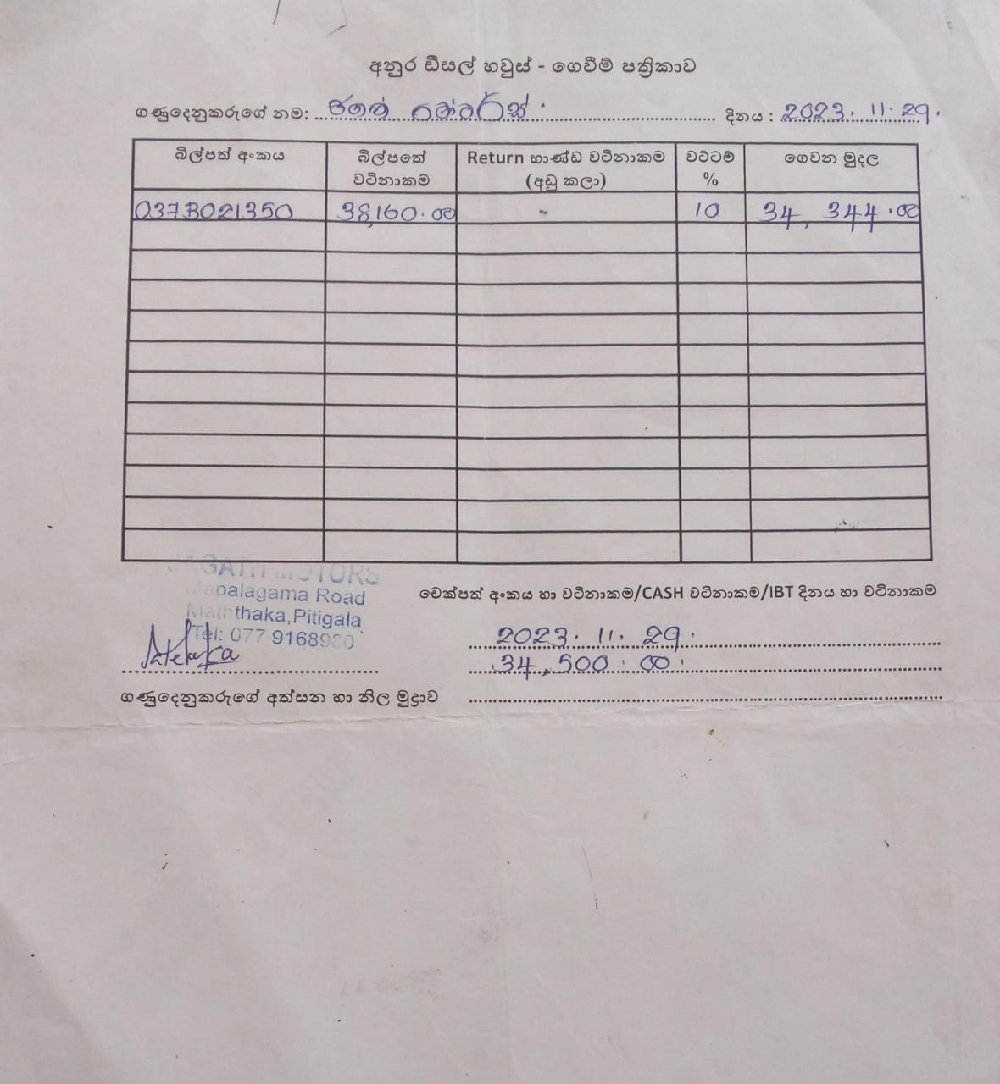 අනුර ඩීසල් හවුස් - ගෙවීම් පත්‍රිකාව
ගණුදෙනුකරුගේ නම: ජගත් මෝටර්ස් දිනය : 2023. 11. 29.
බිල්පත් අංකය බිල්පතේ වටිනාකම Return භාණ්ඩ වටිනාකම (අඩු කලා) වට්ටම % ගෙවන මුදල
0373021350 38,160.00 - 10 34, 344.00
JAGATH MOTORS
Mapalagama Road
Maththaka,Pitigala
Tel: 077 9168980
චෙක්පත් අංකය හා වටිනාකම/CASH වටිනාකම/IBT දිනය හා වටිනාකම
2023. 11. 29.
34,500.00.
ගණුදෙනුකරුගේ අත්සන හා නිල මුද්‍රාව